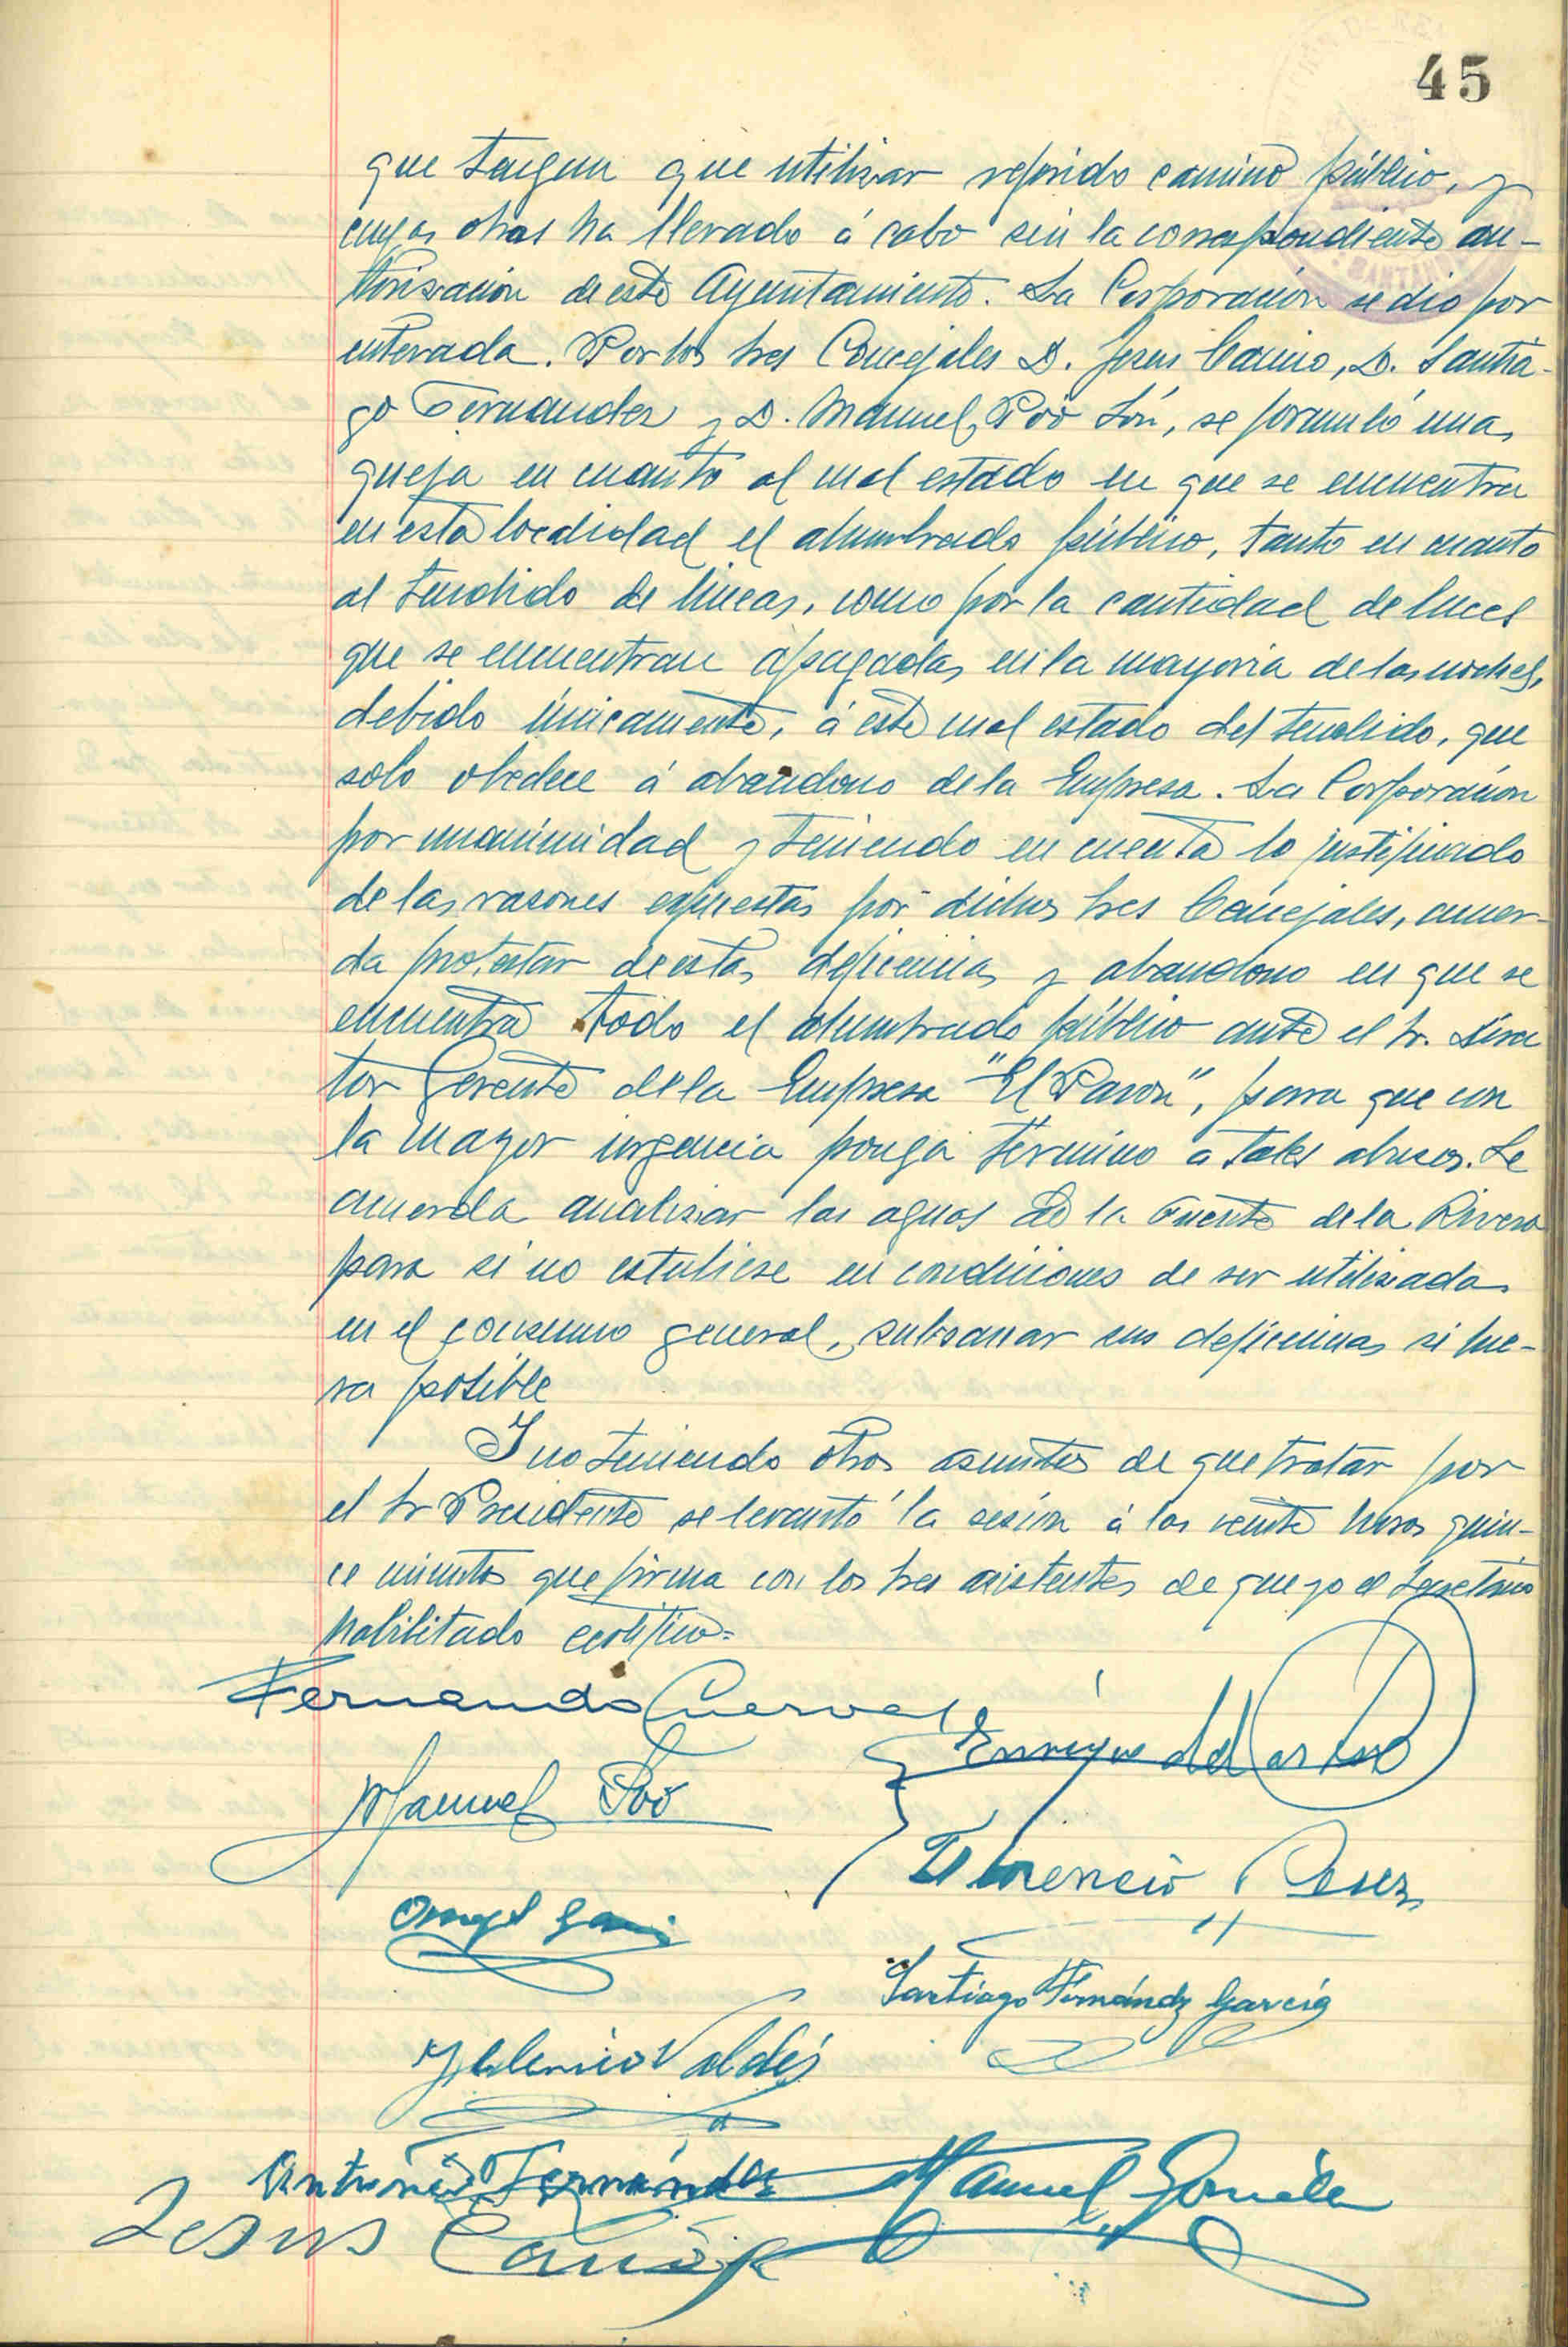 45
que tengan que utilizar referido camino público, y
cuyas obras ha llevado á cabo sin la correspondiente au-
torización de este Ayuntamiento. La Corporación se dio por
enterada. Por los tres Concejales D. Jesus Canino, D. Santia-
go Fernandez y D. Manuel Poó Són, se formuló una
queja en cuanto al mal estado en que se encuentra
en esta localidad el alumbrado público, tanto en cuanto
al tendido de lineas, como por la cantidad de luces
que se encuentran apagadas en la mayoria de las noches,
debido únicamente, á este mal estado del tendido, que
solo obedece á abandono de la Empresa. La Corporación
por unanimidad y teniendo en cuenta lo justificado
de las razones expuestas por dichos tres Concejales, acuer-
da protestar de estas deficiencias y abandono en que se
encuentra todo el alumbrado público ante el Sr. Direc
tor Gerente de la Empresa "El Pavon", para que con
la mayor urgencia ponga término a tales abusos. Se
acuerda analizar las aguas de la Fuente de la Rivera
para si no estubiese en condiciones de ser utilizada
en el consumo general, subsanar sus deficiencias si fue-
ra posible
Y no teniendo otros asuntos de que tratar por
el Sr Presidente se levantó la sesión á las veinte horas quin-
ce minutos que firma con los Sres asistentes de que yo el Secretario
habilitado certifico=
Fernando Cuerva
Enrique del
Manuel Poó
Florencio Perez
Angel
Santiago Fernández García
Valdés
Antonio Fernández Manuel González
Jesus